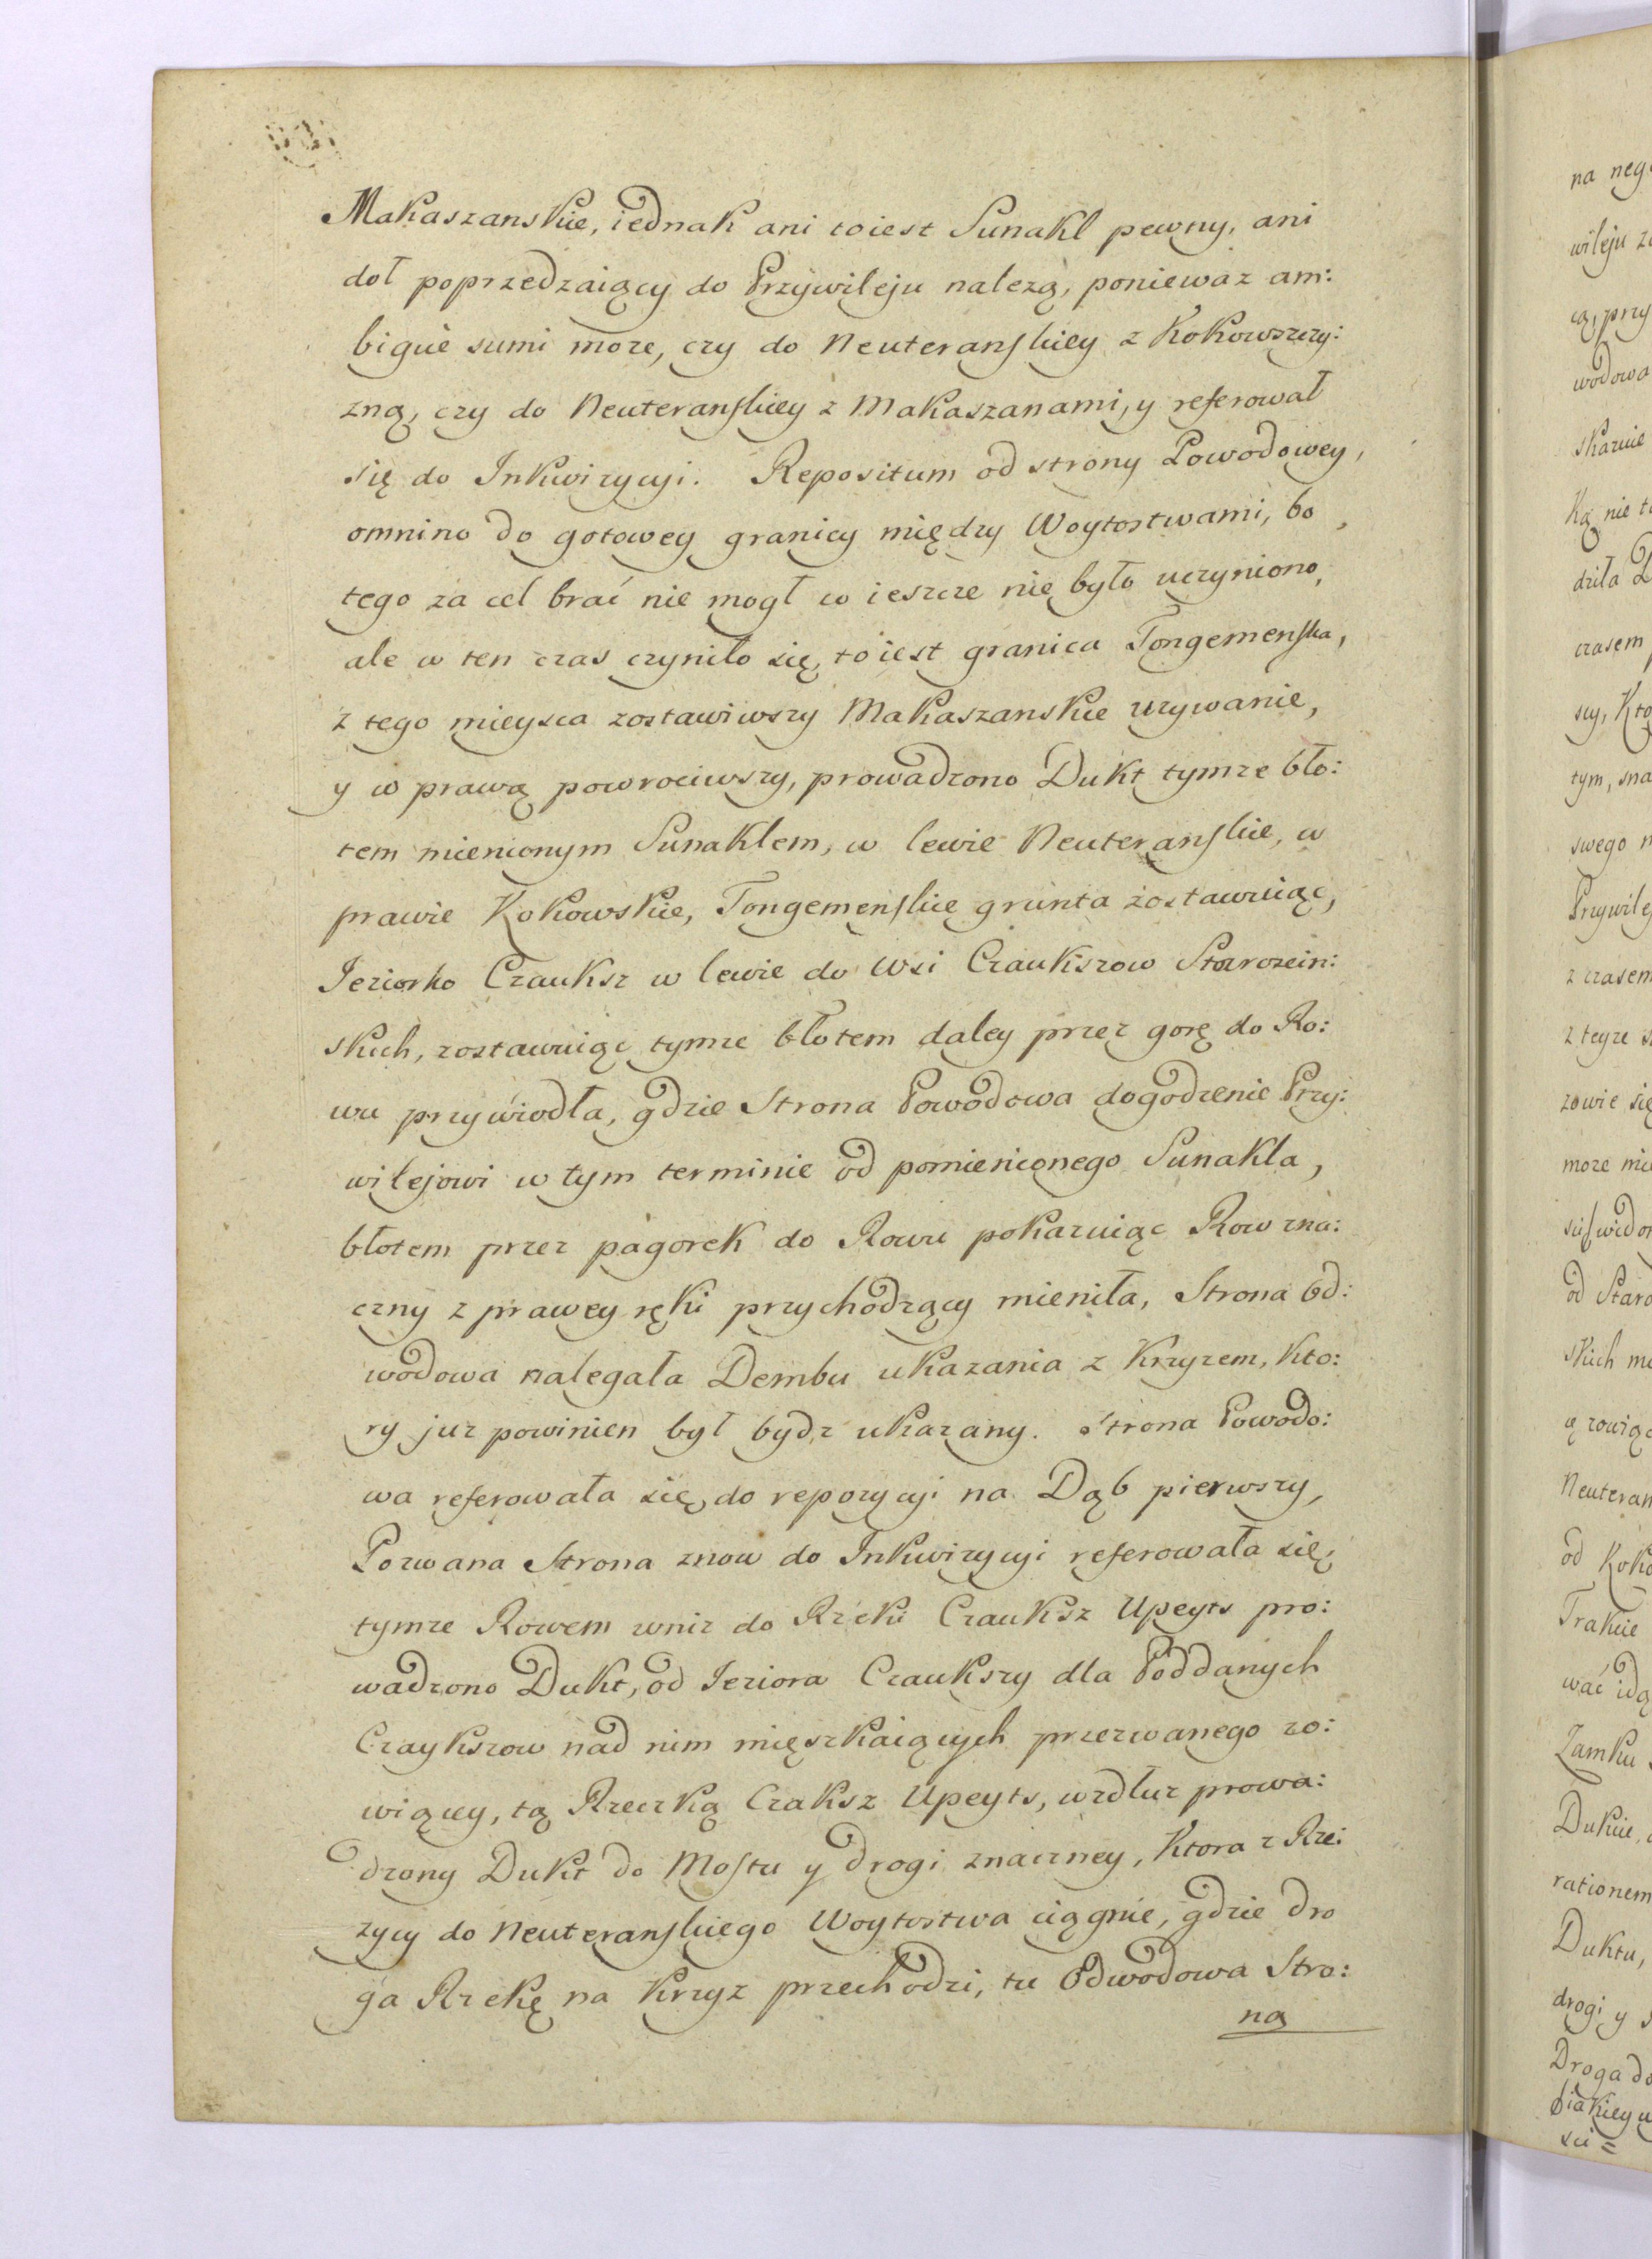 Makaszanskie, iednak ani toiest Sunakl pewny, ani
doł poprzedzaiący do Przywileju nalezą, poniewaz am:
bigue sumi moze, czy do Neuteranskiey z Kokowszczy:
zną, czy do Neuteranskiey z Makaszanami, y referował
się do Inkwizycyi. Repositum od strony Powodowey,
omnino do gotowey granicy między Woytostwami, bo
tego za cel brać nie mogł co ieszcze nie było uczyniono,
ale w ten czas czyniło się, toiest granica Tongemenska,
z tego mieysca zostawiwszy Makaszanskie uzywanie,
y w prawą powrociwszy, prowadzono Dukt tymze bło:
tem mienionym Sunaklem, w lewie Neuteranskie, w
prawie Kokowskie, Tongemenskie grunta zostawuiąc,
Ieziorko Czauksz w lewie do Wsi Czaukszow Starozein:
skich, zostawuiąc tymze błotem daley przez gorę do Ro:
wu przywiodła, gdzie Strona Powodowa dogodzenie Przy:
wilejowi w tym terminie od pomienionego Sunakla,
błotem przez pagorek do Rowu pokazuiąc Row zna:
czny z prawey ręki przychodzący mieniła, Strona Od:
wodowa nalegała Dembu ukazania z Krzyzem, kto:
ry juz powinien był bydz ukazany. Strona Powodo:
wa referowała się do repozycyi na Dąb pierwszy,
Pozwana Strona znow do Inkwizycyi referowała się,
tymze Rowem wniz do Rzeki Czauksz Upeyts pro:
wadzono Dukt, od Ieziora Czaukszy dla Poddanych
Czaykszow nad nim mięszkaiących przezwanego zo:
wiącey, tą Rzeczką Czaksz Upeyts, wzdłuz prowa:
dzony Dukt do Mostu y drogi znaczney, ktora z Rze:
zycy do Neuteranskiego Woytostwa ciągnie, gdzie dro
ga Rzekę na Krzyz przechodzi, tu Odwodowa Stro:
na
na neg
wileju
cą, przy
wodowa
skarnie
Ką nie
dziła
czasem
scy, Kto
tym, sna
swego
Przywile
z czasem
z teyze
zowie się
moze
od Staro
skich
Neuteran
od Koko
Trakcie
wać idą
Zamku
Dukcie
rationem
Duktu,
drogi y
Droga do
sci =